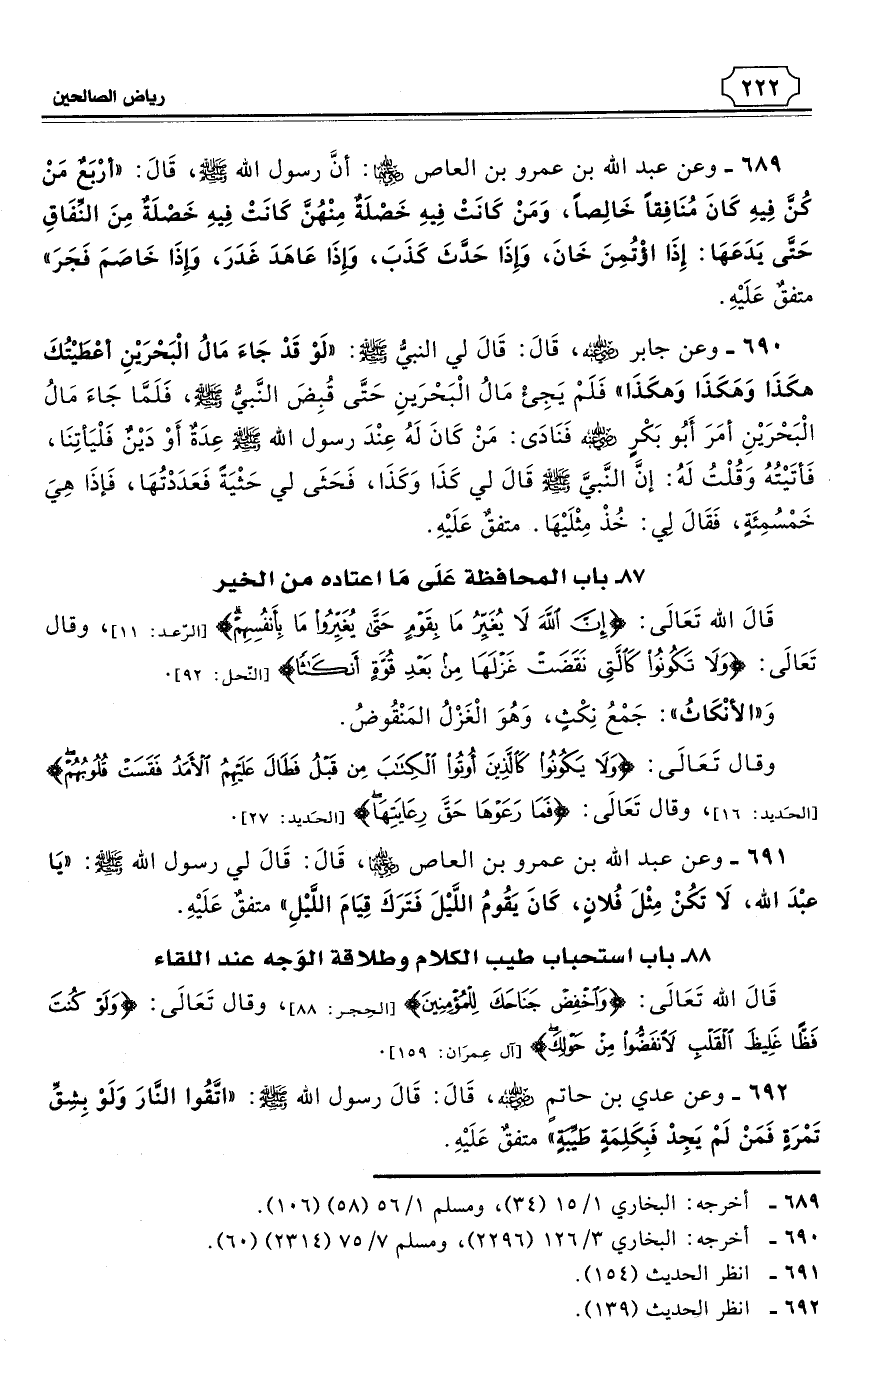 ٢٢٢
رياض الصالحين
٦٨٩ ـ وعن عبد الله بن عمرو بن العاص ﵄: أنَّ رسول الله ﷺ، قَالَ: «أرْبَعٌ مَنْ
كُنَّ فِيهِ كَانَ مُنَافِقاً خَالِصاً، وَمَنْ كَانَتْ فِيهِ خَصْلَةٌ مِنْهُنَّ كَانَتْ فِيهِ خَصْلَةٌ مِنَ النِّفَاقِ
حَتَّى يَدَعَهَا: إِذَا اؤْتُمِنَ خَانَ، وَإِذَا حَدَّثَ كَذَبَ، وَإِذَا عَاهَدَ غَدَرَ، وَإِذَا خَاصَمَ فَجَرَ»
متفقٌ عَلَيْهِ.
٦٩٠ ـ وعن جابر ﵁، قَالَ: قَالَ لي النبيُّ ﷺ: «لَوْ قَدْ جَاءَ مَالُ الْبَحْرَيْنِ أعْطَيْتُكَ
هكَذَا وَهَكَذَا وَهكَذَا» فَلَمْ يَجِئْ مَالُ الْبَحْرَيْنِ حَتَّى قُبِضَ النَّبيُّ ﷺ، فَلَمَّا جَاءَ مَالُ
الْبَحْرَيْنِ أمَرَ أَبُو بَكْرٍ ﵁ فَنَادَى: مَنْ كَانَ لَهُ عِنْدَ رسول الله ﷺ عِدَةٌ أوْ دَيْنٌ فَلْيَأتِنَا،
فَأتَيْتُهُ وَقُلْتُ لَهُ: إنَّ النَّبيَّ ﷺ قَالَ لي كَذَا وَكَذَا، فَحَثَى لي حَثْيَةً فَعَدَدْتُهَا، فَإِذَا هِيَ
خَمْسُمِئَةٍ، فَقَالَ لِي: خُذْ مِثْلَيْهَا. متفقٌ عَلَيْهِ.
٨٧ـ باب المحافظة عَلَى مَا اعتاده من الخير
قَالَ الله تَعَالَى: ﴿إِنَّ ٱللَّهَ لَا يُغَيِّرُ مَا بِقَوْمٍ حَتَّىٰ يُغَيِّرُوا۟ مَا بِأَنفُسِهِمْۗ﴾ [الرّعد: ١١]، وقال
تَعَالَى: ﴿وَلَا تَكُونُوا۟ كَٱلَّتِى نَقَضَتْ غَزْلَهَا مِنۢ بَعْدِ قُوَّةٍ أَنكَـٰثًا﴾ [النّحل: ٩٢].
وَ«الأنْكَاثُ»: جَمْعُ نِكْثٍ، وَهُوَ الْغَزْلُ المَنْقُوضُ.
وقال تَعَالَى: ﴿وَلَا يَكُونُوا۟ كَٱلَّذِينَ أُوتُوا۟ ٱلْكِتَـٰبَ مِن قَبْلُ فَطَالَ عَلَيْهِمُ ٱلْأَمَدُ فَقَسَتْ قُلُوبُهُمْۖ﴾
[الحَديد: ١٦]، وقال تَعَالَى: ﴿فَمَا رَعَوْهَا حَقَّ رِعَايَتِهَاۖ﴾ [الحَديد: ٢٧].
٦٩١ ـ وعن عبد الله بن عمرو بن العاص ﵄، قَالَ: قَالَ لي رسول الله ﷺ: «يَا
عبْدَ الله، لَا تَكُنْ مِثْلَ فُلانٍ، كَانَ يَقُومُ اللَّيْلَ فَتَرَكَ قِيَامَ اللَّيْلِ» متفقٌ عَلَيْهِ.
٨٨ـ باب استحباب طيب الكلام وطلاقة الوَجه عند اللقاء
قَالَ الله تَعَالَى: ﴿وَٱخْفِضْ جَنَاحَكَ لِلْمُؤْمِنِينَ﴾ [الحِجر: ٨٨]، وقال تَعَالَى: ﴿وَلَوْ كُنتَ
فَظًّا غَلِيظَ ٱلْقَلْبِ لَٱنفَضُّوا۟ مِنْ حَوْلِكَۖ﴾ [آل عِمرَان: ١٥٩].
٦٩٢ ـ وعن عدي بن حاتمٍ ﵁، قَالَ: قَالَ رسول الله ﷺ: «اتَّقُوا النَّارَ وَلَوْ بِشِقِّ
تَمْرَةٍ فَمَنْ لَمْ يَجِدْ فَبِكَلِمَةٍ طَيِّبَةٍ» متفقٌ عَلَيْهِ.
٦٨٩ ـ أخرجه: البخاري ١/ ١٥ (٣٤)، ومسلم ١/ ٥٦ (٥٨) (١٠٦).
٦٩٠ ـ أخرجه: البخاري ٣/ ١٢٦ (٢٢٩٦)، ومسلم ٧/ ٧٥ (٢٣١٤) (٦٠).
٦٩١ ـ انظر الحديث (١٥٤).
٦٩٢ ـ انظر الحديث (١٣٩).